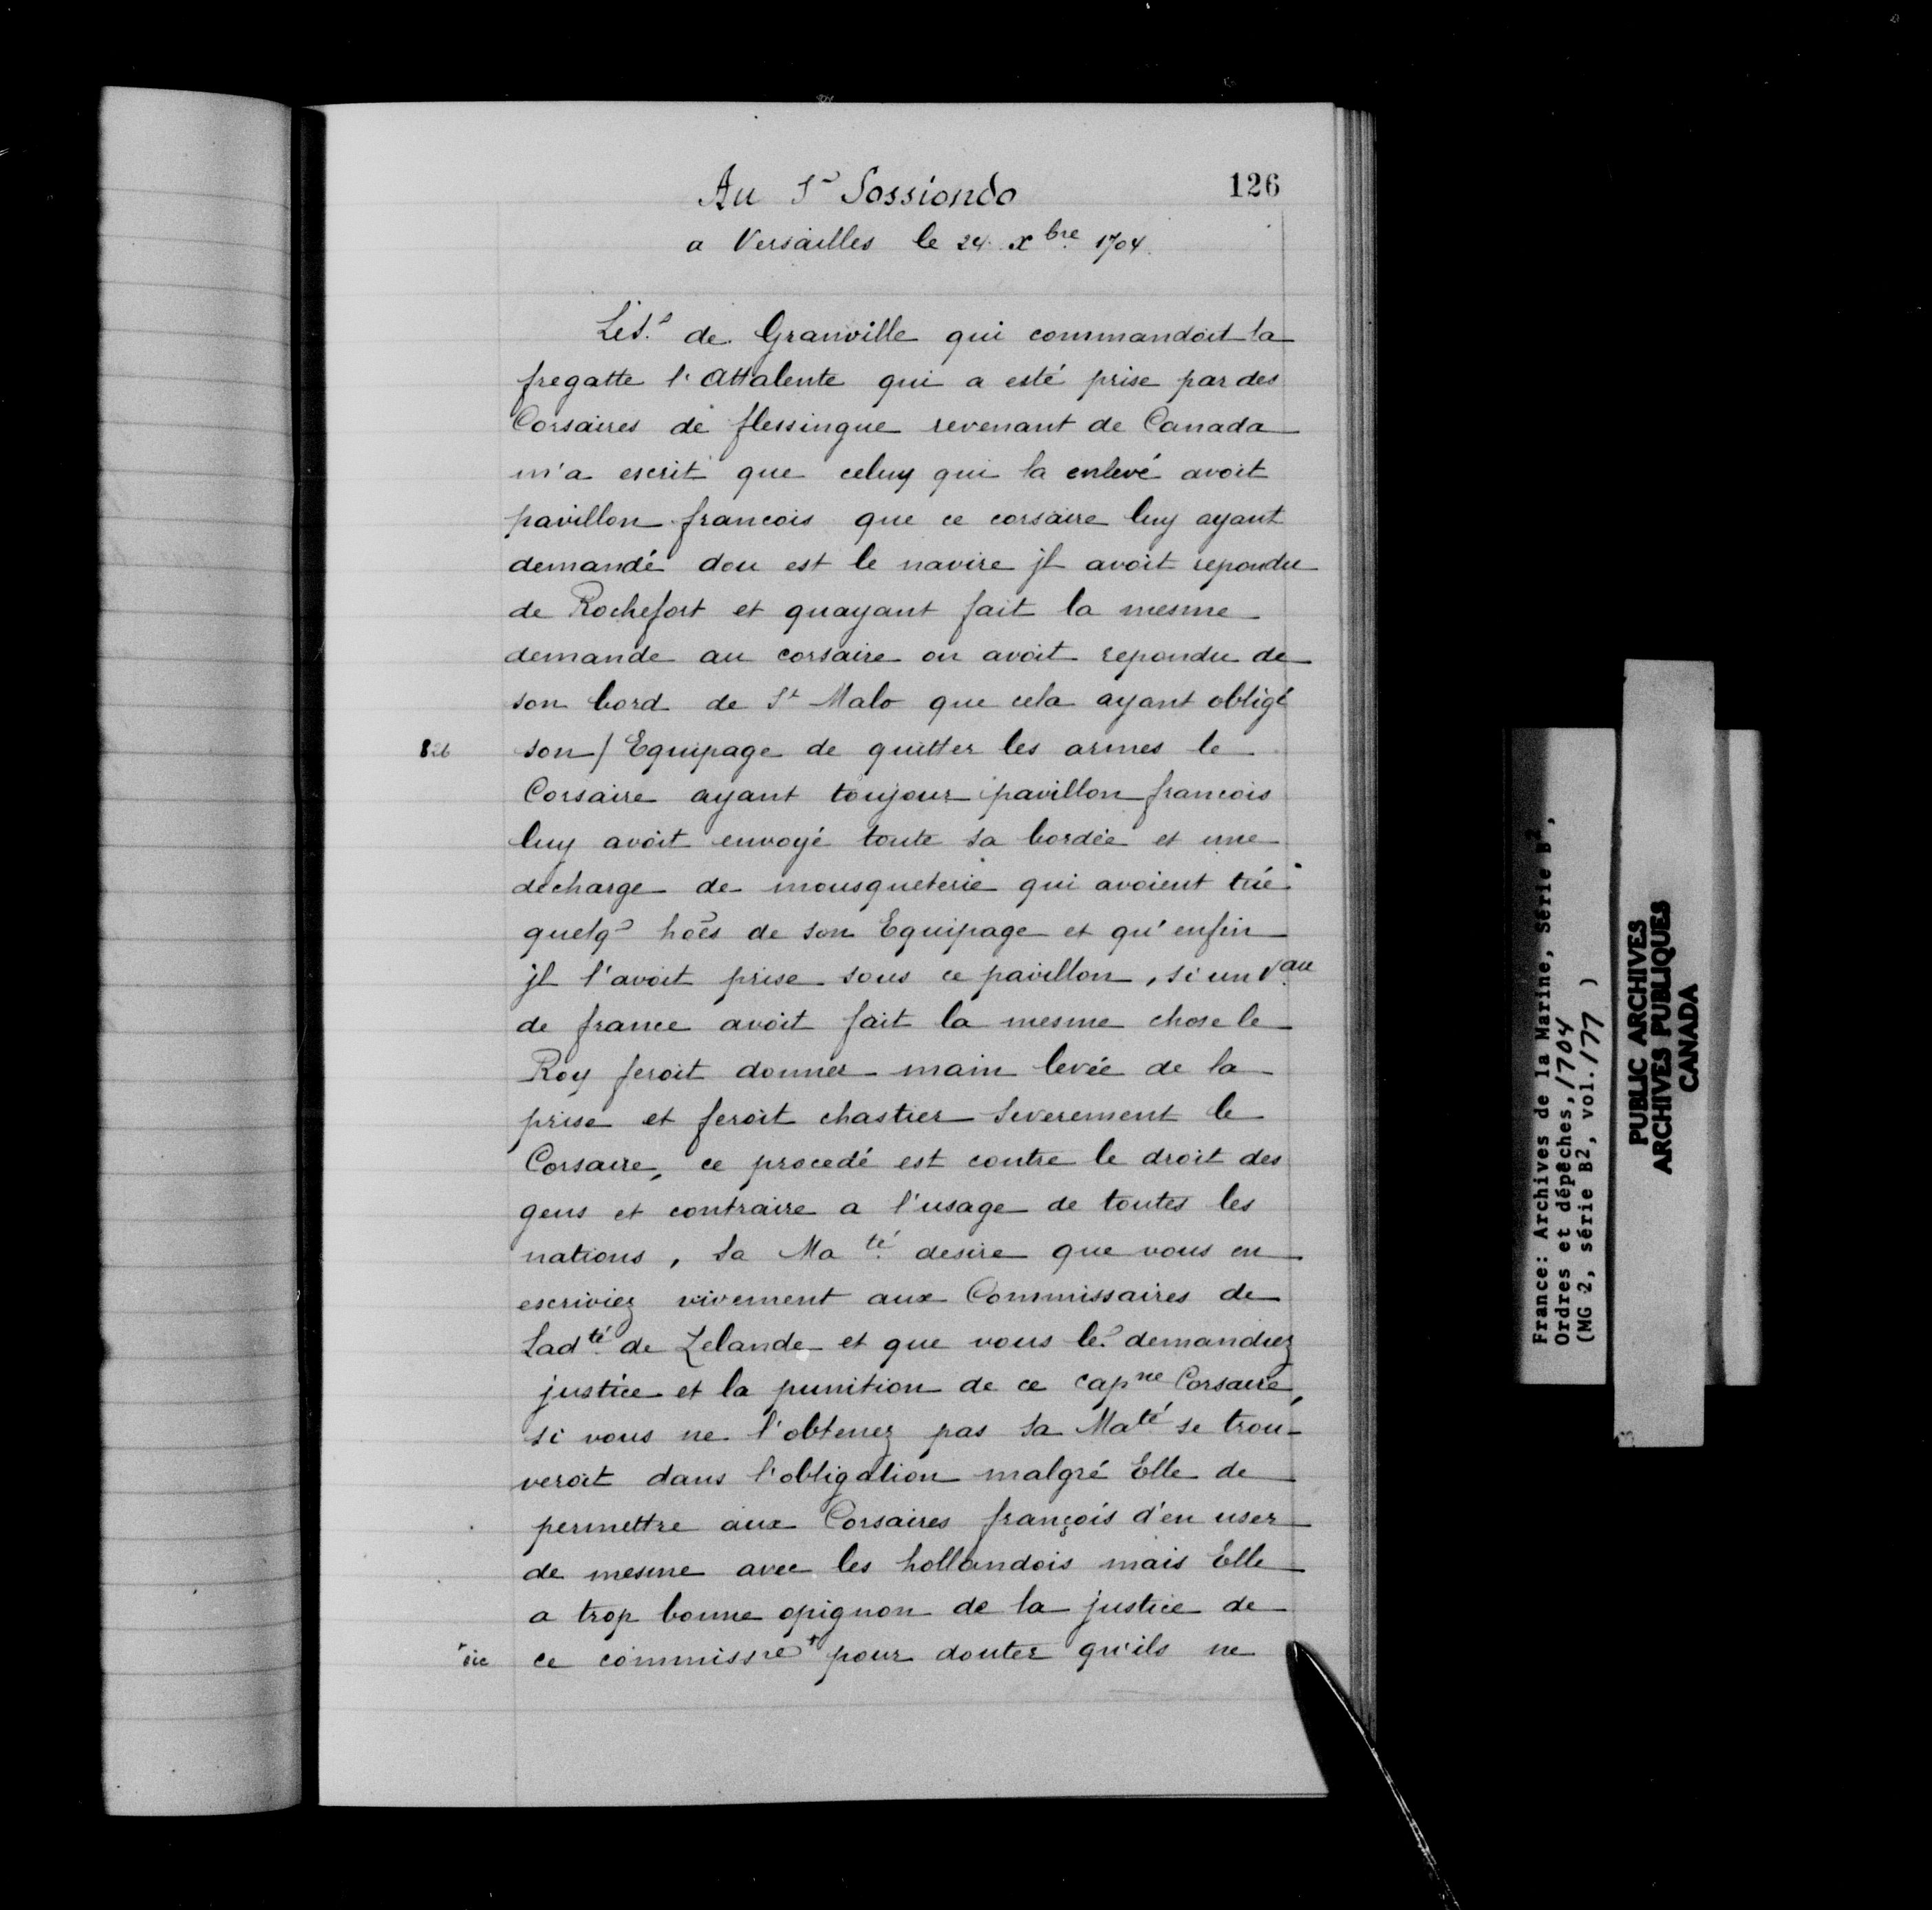 126
Au Sr Sossiondo
a Versailles le 24 xbre 1704.
Le S.r de Granville qui commandoit la
fregatte l'Attalente qui a esté prise par des
Corsaires de flessingue revenant de Canada
m'a escrit que celuy qui la enlevé avoit
pavillon francois que ce corsaire luy ayant
demandé dou est le navire jl avoit repondu
de Rochefort et quayant fait la mesme
demande au corsaire on avoit repondu de
son bord de St Malo que cela ayant obligé
826 son / Equipage de quitter les armes le
Corsaire ayant toujour pavillon francois
luy avoit envoyé toute sa bordée et une
decharge de mousqueterie qui avoient tué
quelqs hoẽs de son Equipage et qu'enfin
jl l'avoit prise sous ce pavillon, si un Vau
de france avoit fait la mesme chose le
Roy feroit donner main levée de la
prise et feroit chastier severement le
Corsaire, ce procedé est contre le droit des
gens et contraire a l'usage de toutes les
nations, Sa Maté desire que vous en
escriviez vivement aux Commissaires de
Ladté de Zelande et que vous le.r demandiez
justice et la punition de ce capne Corsaire,
si vous ne l'obtenez pas Sa Maté se trou-
veroit dans l'obligation malgré Elle de
permettre aux Corsaires françois d'en user
de mesme avec les hollandois mais Elle
a trop bonne opignon de la justice de
+sic ce commissre+ pour douter qu'ils ne
France: Archives de la Marine, Série B2,
Ordres et dépêches, 1704
(MG 2, série B2, vol. 177 )
PUBLIC ARCHIVES
ARCHIVES PUBLIQUES
CANADA